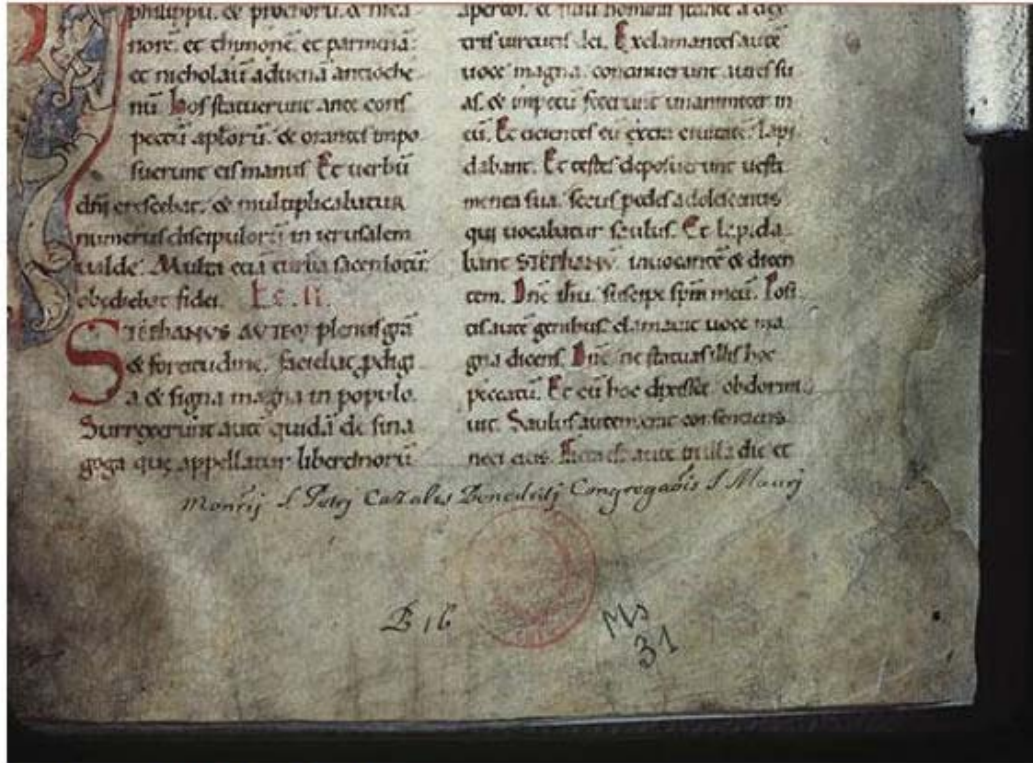 philippū. & prochorū. & nica
norē. et thimonē. et parmenā.
et nicholaū aduenā antioche
nū. hos statuerunt ante cons
pectū aplōrū. & orantes impo
suerunt eis manus. Et uerbū
dn̄i crescebat. & multiplicabatur
numerus discipulorū in ierusalem
ualde. Multa etiā turba sacerdotū
obediebat fidei. Lc. II.
STEPHANVS AVTEM plenus gr̄a
& fortitudine. faciebat pdigi
a & signa magna in populo.
Surrexerunt autē quidā de sina
goga quę appellatur libertinorū
apertos. et filiū hominis stantē a dex
tris uirtutis dei. Exclamantes autē
uoce magna. continuerunt aures su
as. & impetū fecerunt unanimiter in
eū. Et eicientes eū extra ciuitatē. lapi
dabant. Et testes deposuerunt uesti
menta sua. secus pedes adolescentis
qui uocabatur saulus. Et lapida
bant STEPHANV̄. inuocantē & dicen
tem. Dn̄e ih̄u. suscipe sp̄m meū. Posi
tis autē genibus. clamauit uoce ma
gna dicens. Dn̄e ne statuas illis hoc
peccatū. Et cū hoc dixisset. obdormi
uit. Saulus autem erat consentiens
neci eius. Facta est autē in illa die et
Monrij S. Petrj Casalis Benedictj Congregaōis S. Maurj
B 16
Ms
31